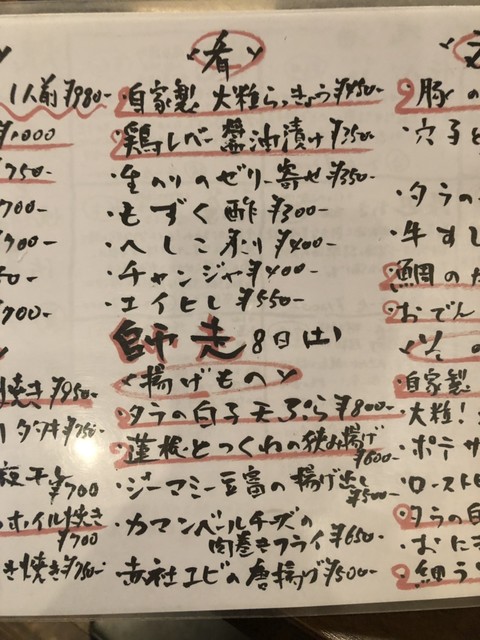 肴
・自家製 大粒らっきょう ¥450-
・鶏レバー醤油漬け ¥350-
・生のりのゼリー寄せ ¥350-
・もずく酢 ¥300-
・へしこ刺 ¥400-
・チャンジャ ¥400-
・エイヒレ ¥550-
師走 8日(土)
揚げもの
・タラの白子天ぷら ¥800-
・蓮根とつくねの挟み揚げ
¥600-
・ジーマミー豆富の揚げ出し
¥500-
・カマンベールチーズの
肉巻きフライ ¥650-
・赤社エビの唐揚げ ¥500-
1人前 ¥980-
¥1000
¥750-
700-
¥700-
50-
焼き ¥950-
¥750-
¥700
ホイル焼き
¥700
き焼き ¥750-
豚の
・穴子と
・タラの
・牛すじ
鯛のた
おでん
自家製
大粒!
・ポテサ
・ローストビ
タラの白
・おにぎ
・鯛う